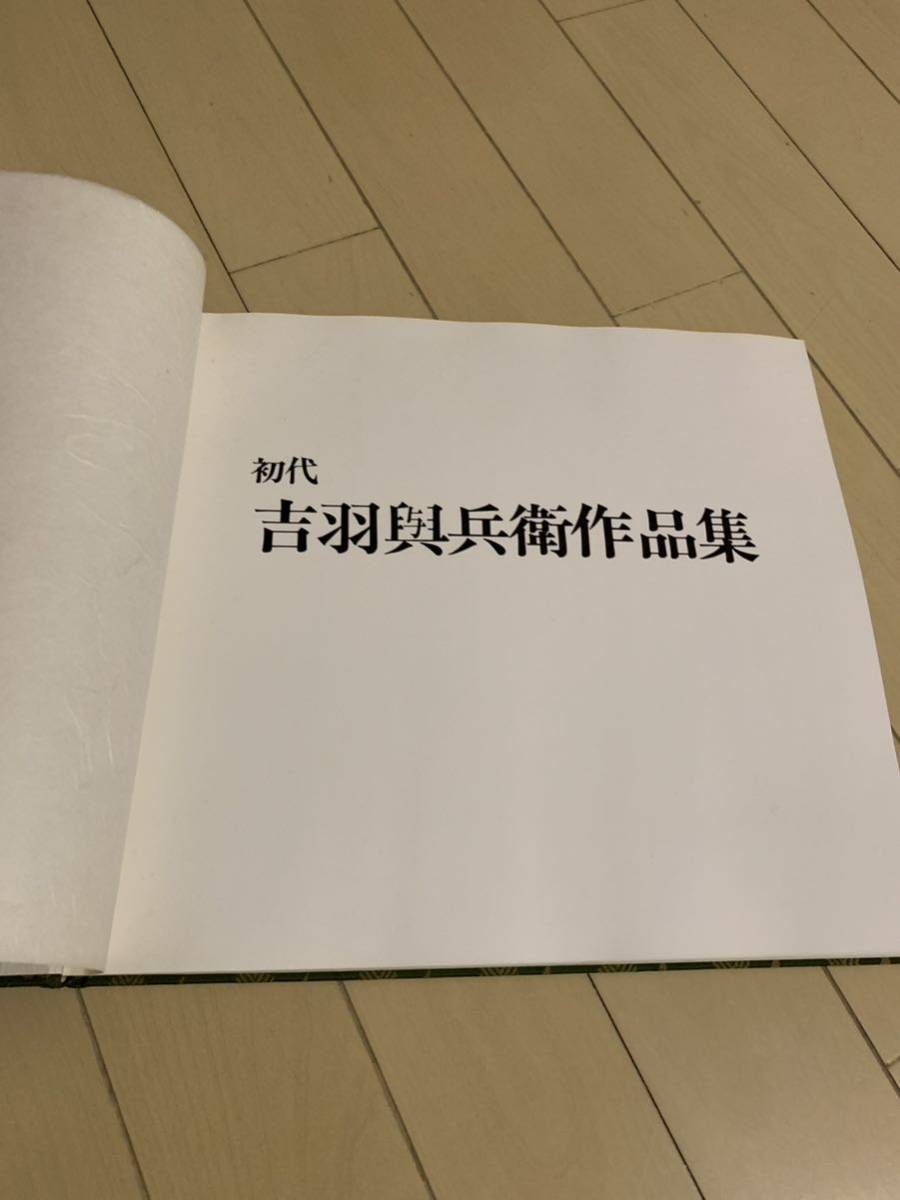 初代
吉羽與兵衛作品集